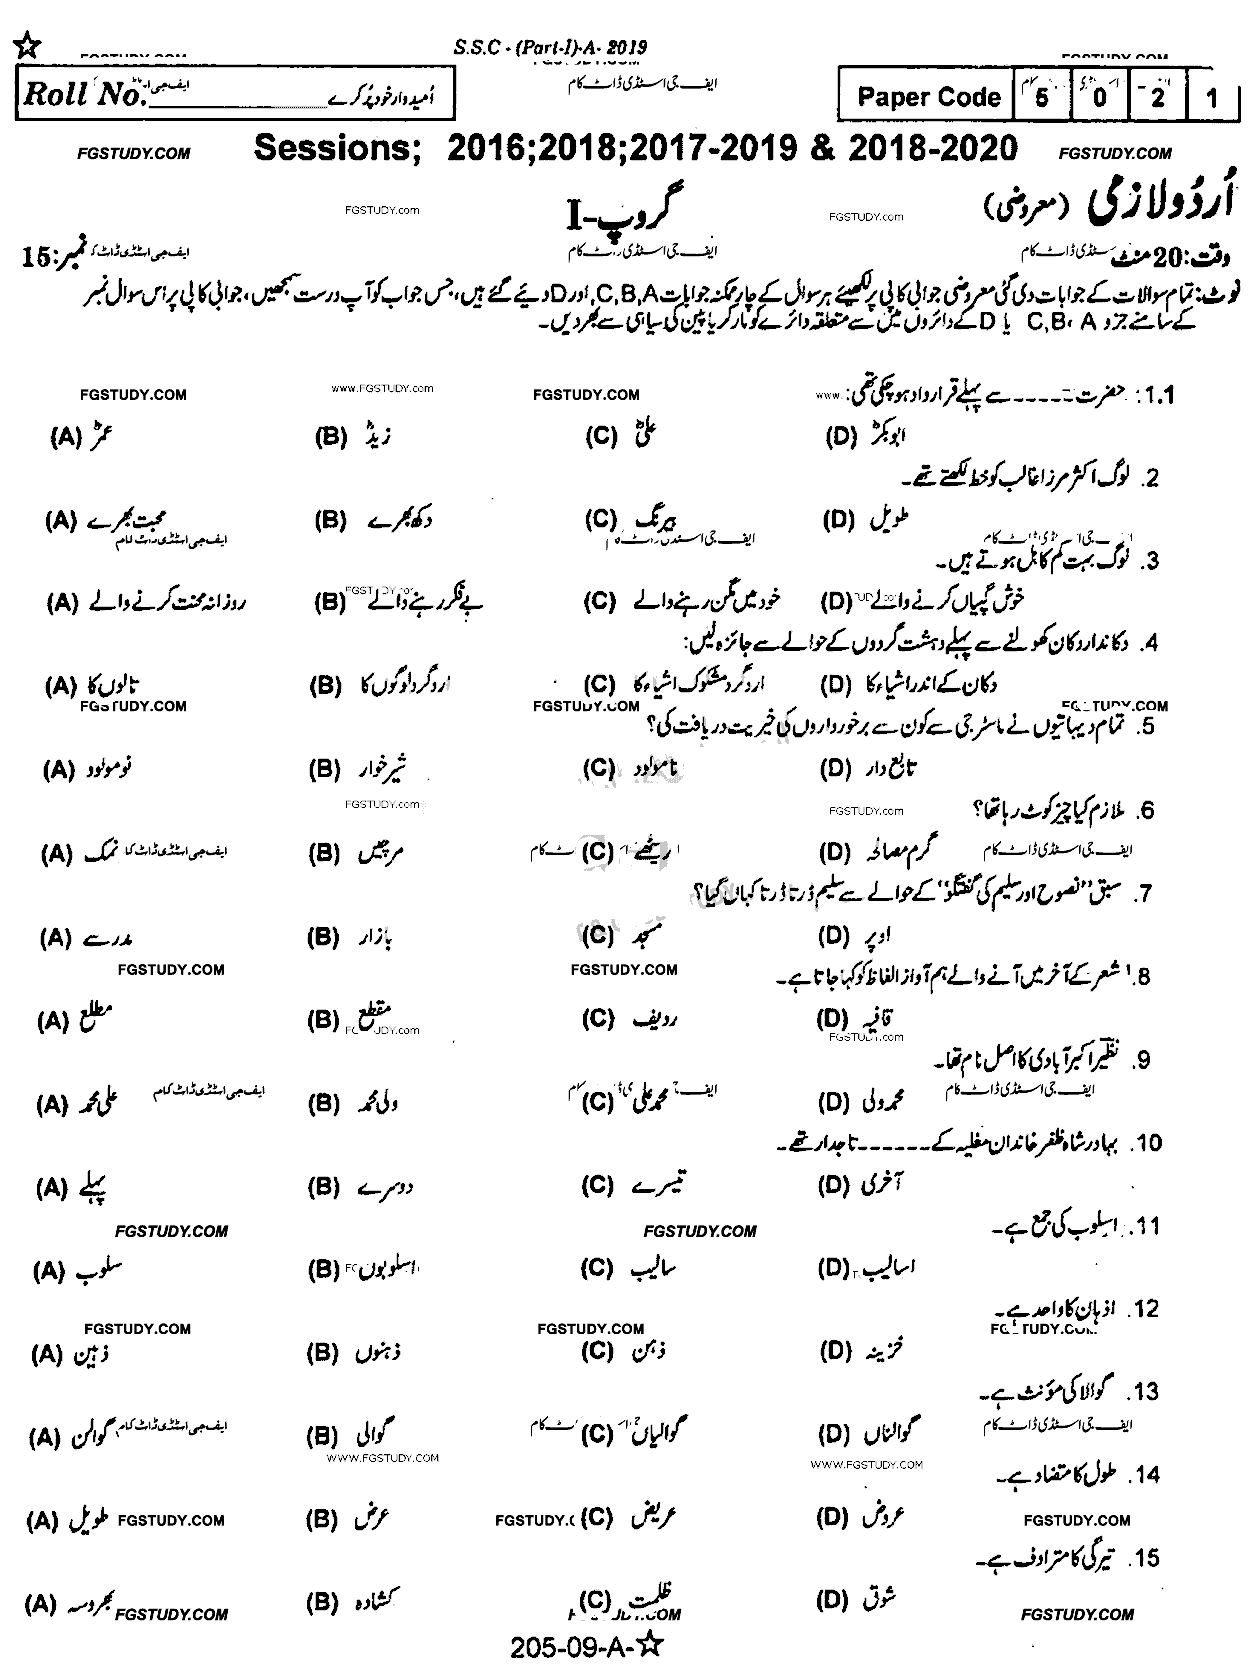 S.S.C - (Part-I)-A- 2019
Roll No. امیدوار خود پُر کرے
ایف جی اسٹڈی ڈاٹ کام
Paper Code 5 0 2 1
FGSTUDY.COM Sessions; 2016;2018;2017-2019 & 2018-2020 FGSTUDY.COM
اُردو لازمی (معروضی) FGSTUDY.com گروپ-I FGSTUDY.com
وقت:20 منٹ ایف جی اسٹڈی ڈاٹ کام نمبر:15
نوٹ: تمام سوالات کے جوابات دی گئی معروضی جوابی کاپی پر لکھیے ہر سوال کے چار ممکنہ جوابات A,B,C, اور D دیئے گئے ہیں، جس جواب کو آپ درست سمجھیں، جوابی کاپی پر اس سوال نمبر
کے سامنے جزو A ،B،C یا D کے دائروں میں سے متعلقہ دائرے کو مارکر یا پین کی سیاہی سے بھر دیں۔
1.1: حضرت ------ سے پہلے قرارداد ہو چکی تھی: FGSTUDY.COM www.FGSTUDY.com FGSTUDY.COM
(A) عمرؓ (B) زیدؓ (C) علیؓ (D) ابوبکرؓ
2. لوگ اکثر مرزا غالب کو خط لکھتے تھے۔
(A) محبت بھرے (B) دکھ بھرے (C) بیرنگ (D) طویل
ایف جی اسٹڈی ڈاٹ کام
3. لوگ بہت کم کاہل ہوتے ہیں۔
(A) روزانہ محنت کرنے والے (B) بے فکر رہنے والے (C) خود میں مگن رہنے والے (D) خوش گپیاں کرنے والے
4. دکاندار دکان کھولنے سے پہلے دہشت گردوں کے حوالے سے جائزہ لیں:
(A) تالوں کا (B) اردگرد لوگوں کا (C) اردگرد مشکوک اشیاء کا (D) دکان کے اندر اشیاء کا
FGSTUDY.COM FGSTUDY.COM FGSTUDY.COM
5. تمام دیہاتیوں نے ماسٹر جی سے کون سے برخورداروں کی خیریت دریافت کی؟
(A) نومولود (B) شیر خوار (C) نامولود (D) تابع دار
FGSTUDY.com FGSTUDY.com
6. ملازم کیا چیز کوٹ رہا تھا؟
(A) نمک (B) مرچیں (C) ریٹھے (D) گرم مصالحہ
ایف جی اسٹڈی ڈاٹ کام
7. سبق "نصوح اور سلیم کی گفتگو" کے حوالے سے سلیم ڈرتا ڈرتا کہاں گیا؟
(A) مدرسے (B) بازار (C) مسجد (D) اوپر
FGSTUDY.COM FGSTUDY.COM
8. شعر کے آخر میں آنے والے ہم آواز الفاظ کو کہا جاتا ہے۔
(A) مطلع (B) مقطع (C) ردیف (D) قافیہ
FGSTUDY.com
9. نظیر اکبر آبادی کا اصل نام تھا۔
(A) علی محمد (B) ولی محمد (C) محمد علی (D) محمد ولی
ایف جی اسٹڈی ڈاٹ کام
10. بہادر شاہ ظفر خاندان مغلیہ کے ------ تاجدار تھے۔
(A) پہلے (B) دوسرے (C) تیسرے (D) آخری
FGSTUDY.COM FGSTUDY.COM
11. اسلوب کی جمع ہے۔
(A) سلوب (B) اسلوبوں (C) سالیب (D) اسالیب
12. اذہان کا واحد ہے۔
FGSTUDY.COM FGSTUDY.COM FGSTUDY.COM
(A) ذہین (B) ذہنوں (C) ذہن (D) خزینہ
13. گوالا کی مؤنث ہے۔
(A) گوالن (B) گوالی (C) گوالیاں (D) گوالناں
ایف جی اسٹڈی ڈاٹ کام
WWW.FGSTUDY.COM WWW.FGSTUDY.COM
14. طول کا متضاد ہے۔
(A) طویل (B) عرض (C) عریض (D) عروض
FGSTUDY.COM FGSTUDY.COM
15. تیرگی کا مترادف ہے۔
(A) بھروسہ (B) کشادہ (C) ظلمت (D) شوق
FGSTUDY.COM FGSTUDY.COM
205-09-A-☆